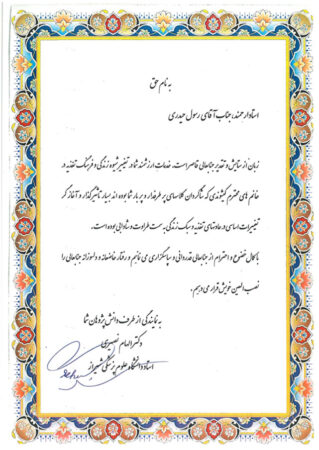 به نام حق
استاد ارجمند، جناب آقای رسول حیدری
زبان از ستایش و تقدیر جنابعالی قاصر است. خدمات ارزشمند شما در تغییر شیوه زندگی و فرهنگ تغذیه در
خانم های محترم کلیوندی که شاگردان کلاسهای پر طرفدار و پر بار شما بوده اند بسیار تاثیرگذار و آغاز گر
تغییرات اساسی در عادتهای تغذیه و سبک زندگی به سمت طراوت و شادابی بوده است.
با کمال خضوع و احترام از جنابعالی قدردانی و سپاسگزاری می نمایم و رفتار خاضعانه و دلسوزانه جنابعالی را
نصب العین خویش قرار می دهم.
به نمایندگی از طرف دانش پژوهان شما
دکتر الهام نصیری
استاد دانشگاه علوم پزشکی شیراز